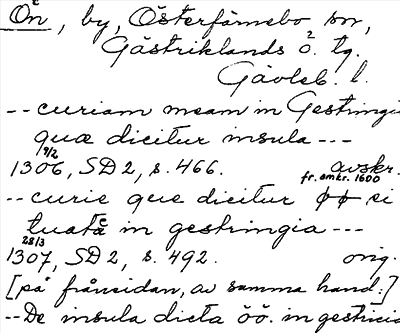 Ön, by, Österfärnebo sn,
Gästriklands ö. tg.
Gävleb. l.
-- curiam meam in Gestringi
quæ dicitur insula ---
9/2
1306, SD 2, s. 466. avskr.
fr. omkr. 1600
-- curie que dicitur øø si
tuata in gestringia ---
28/3
1307, SD 2, s. 492. orig.
[på frånsidan, av samma hand:]
-- De insula dicta öö. in gestrici